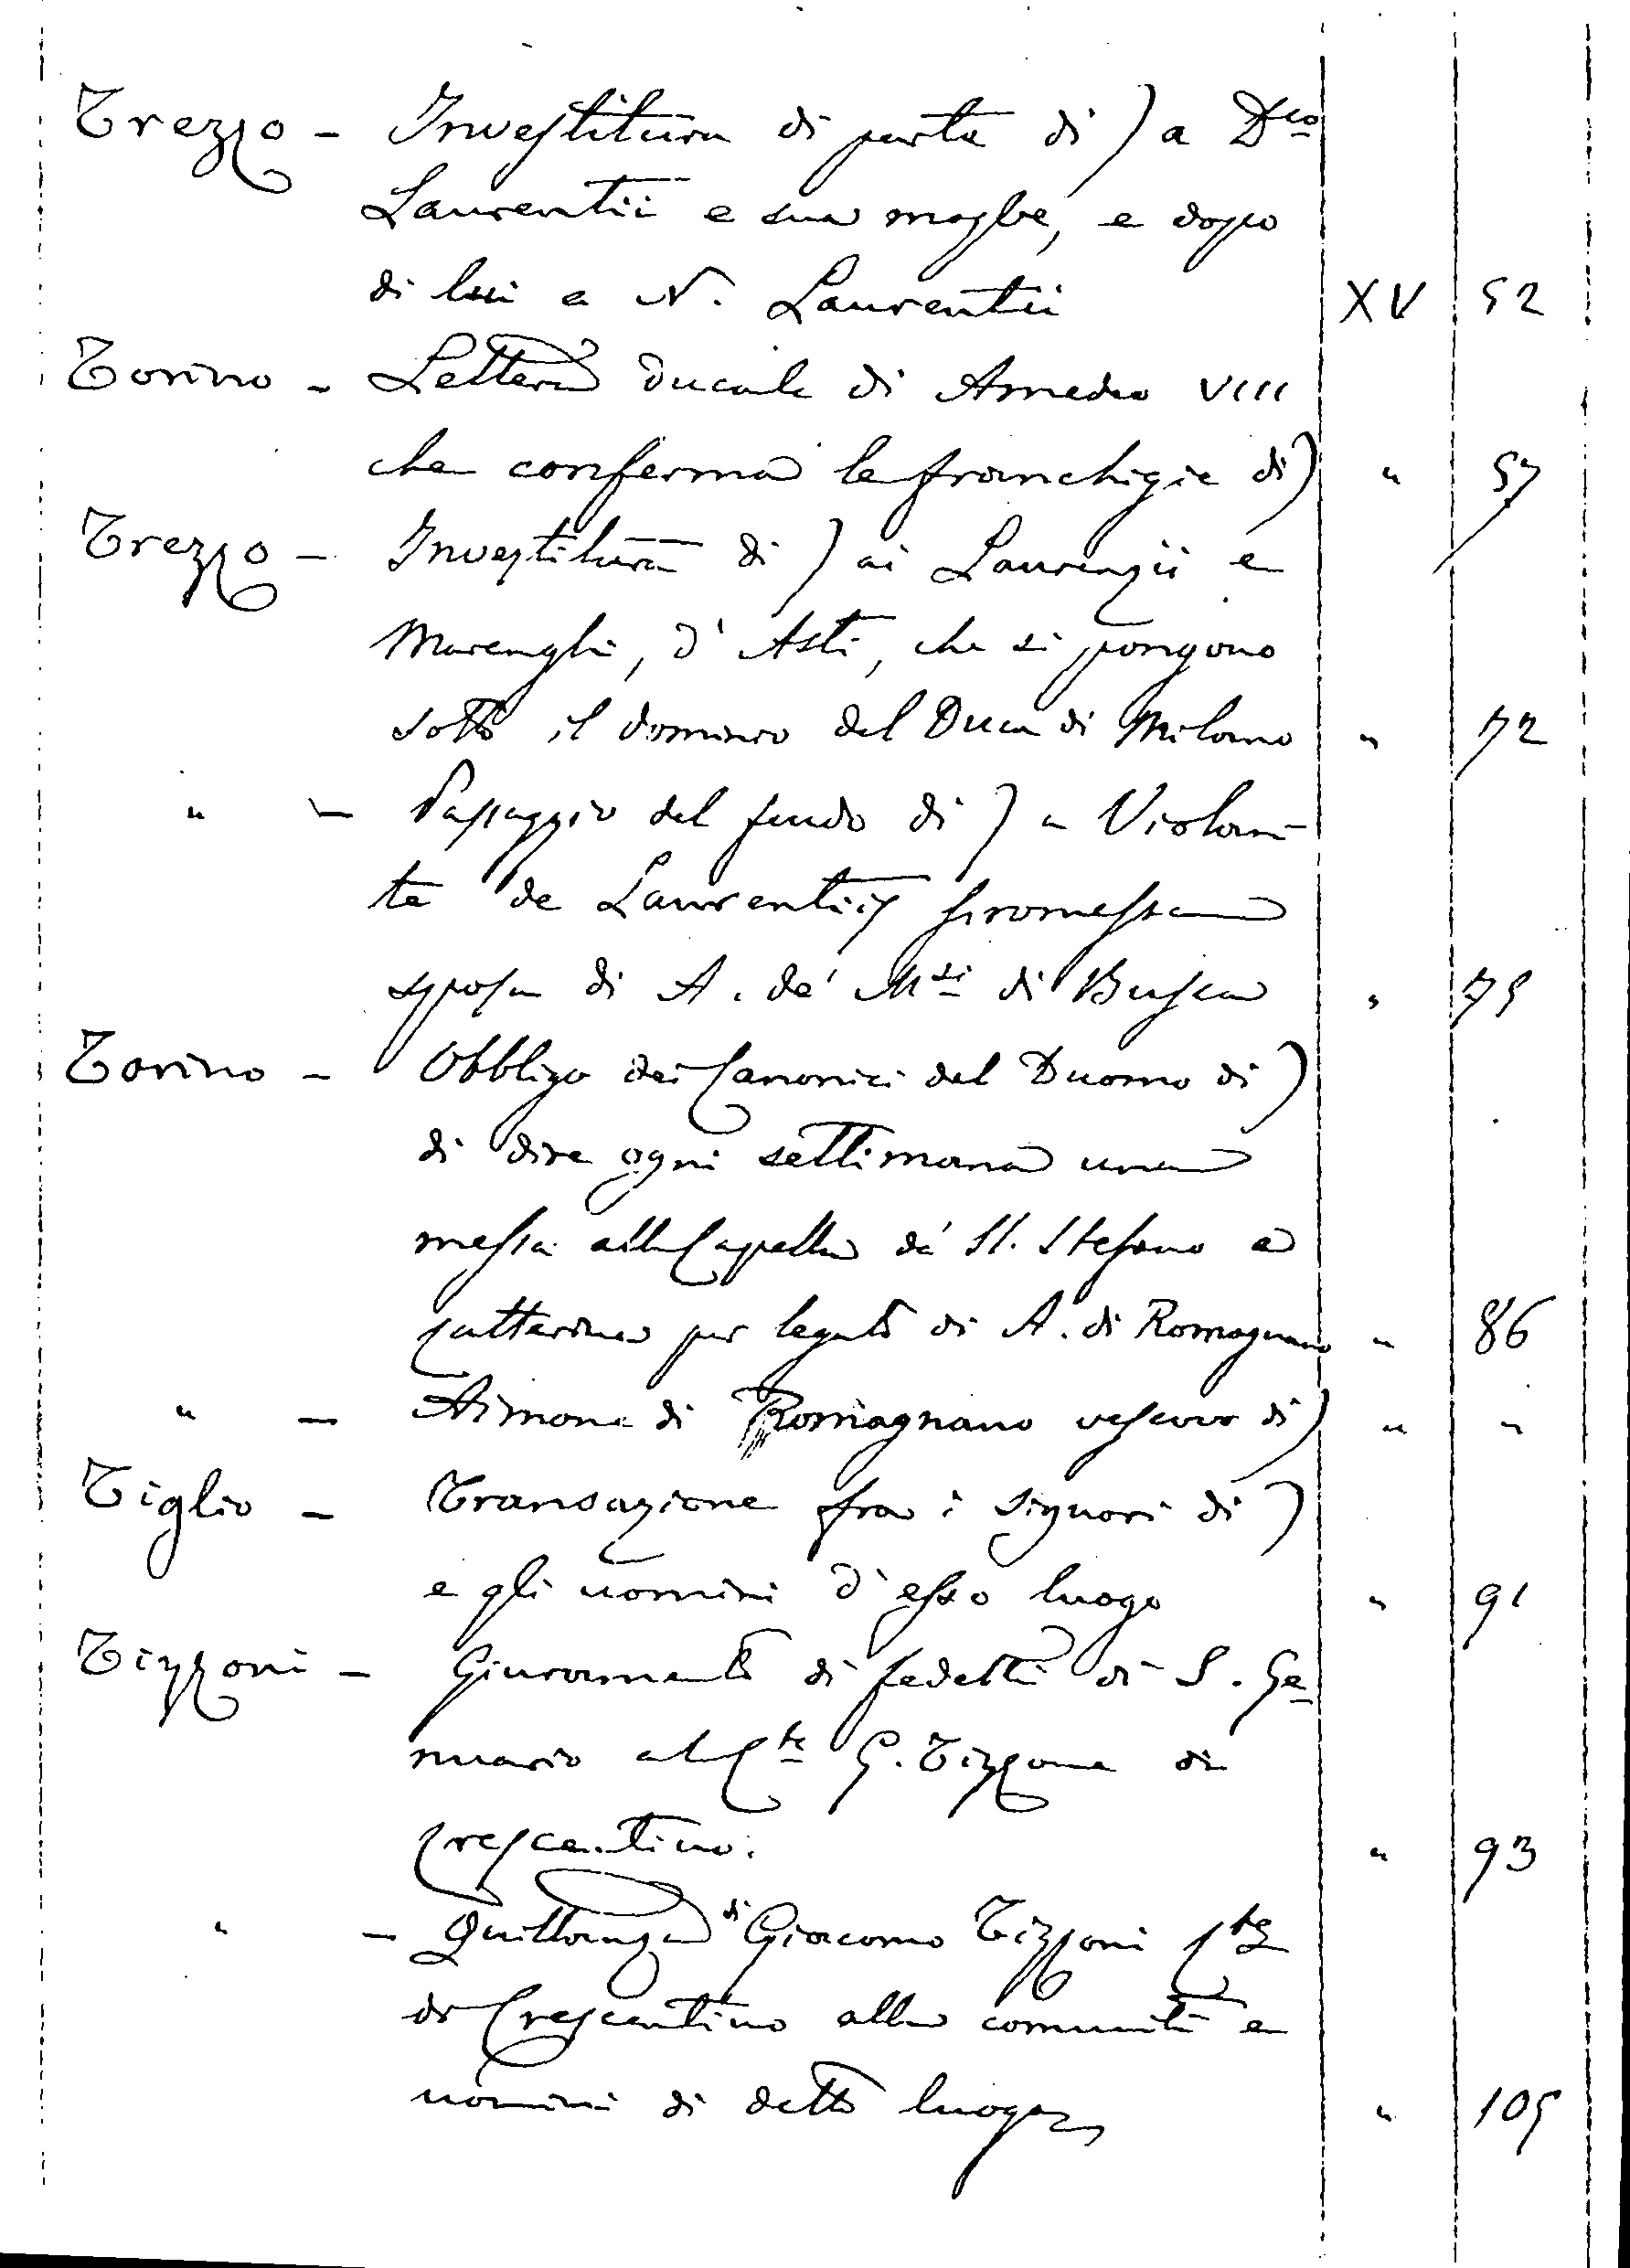 Trezzo - Investitura di parte di ) a Dco
Laurentii e sua moglie, e dopo
di lui a N. Laurentii XV 52
Torino - Lettera ducale di Amedeo VIII
che conferma le franchigie di) " 57
Trezzo - Investitura di ) ai Laurenzii e
Marenghi, d'Asti, che si pongono
sotto il dominio del Duca di Milano " 72
" - Passaggio del feudo di ) a Violan-
te de Laurentiis promessa
sposa di A. de' Msi di Busca " 75
Torino - Obbligo dei Canonici del Duomo di )
di dire ogni settimana una
messa alla Capella di St. Stefano e
Catterina per legato di A. di Romagnano " 86
" - Aimone di Romagnano vescovo di ) " "
Tiglio - Transazione fra i signori di )
e gli uomini d'esso luogo " 91
Tizzoni - Giuramento di fedeltà di S. Ge-
nuario al Cte G. Tizzone di
Crescentino. " 93
" - Quittanza di Giacomo Tizzoni Cte
di Crescentino alla comunità e
uomini di detto luogo " 105